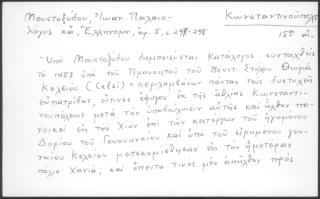 Μουστοξύδου, Ἰωαν. Παλαιο-
λόγος κἄ, Ἑλληνομν., ἀρ. 5, σ. 247-248
Κωνσταντινούπολις
15ος αἰ.
Ὑπὸ Μουστοξύδου δημοσιεύεται Κατάλογος συνταχθεὶς
τῷ 1453 ὑπὸ τοῦ Προνοητοῦ τοῦ Βενετ. Στόλου Θωμᾶ
Κελσίου (Celsi) "περιλαμβάνων πάντας τοὺς δυστυχεῖς
εὐπατρίδας, οἵτινες ἔφυγον ἐκ τῆς ἀθλίας Κωνσταντι-
νουπόλεως μετὰ τὴν ὑποδούλωσιν αὐτῆς καὶ ἦλθον
νοικεὶ εἰς τὴν Χίον ἐπὶ τῶν κατέργων τοῦ ἡγεμόνος
Δορίου τοῦ Γενουηνσίου καὶ ὑπὸ τοῦ εἰρημένου γεν-
ναίου Κελσίου μετεκομίσθησαν εἰς τὴν ἡμετέραν
πόλιν Χανιά, καὶ ἔπειτα τινὲς μὲν ἀπῆλθον πρὸς